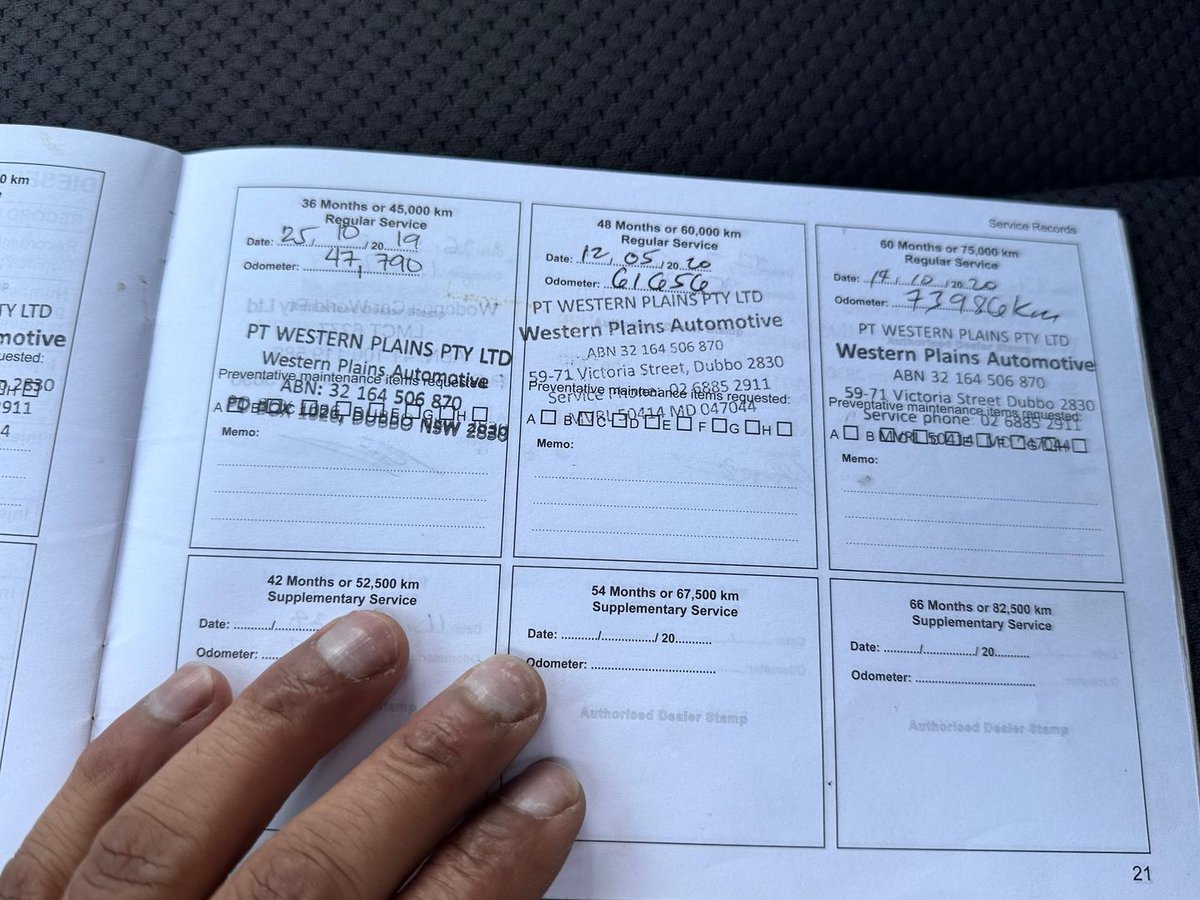 0 km
TY LTD
motive
uested:
H
2830
2911
4
Service Records
36 Months or 45,000 km
Regular Service
Date: 25/10/2019
Odometer: 47,790
PT WESTERN PLAINS PTY LTD
Western Plains Automotive
Preventative maintenance items requested:
ABN: 32 164 506 870
A B C D E F G H
PO BOX 1026, DUBBO NSW 2830
Memo:
48 Months or 60,000 km
Regular Service
Date: 12/05/2020
Odometer: 61656
PT WESTERN PLAINS PTY LTD
Western Plains Automotive
ABN 32 164 506 870
59-71 Victoria Street, Dubbo 2830
Preventative maintenance items requested:
Service phone: 02 6885 2911
MVRL 50414 MD 047044
A B C D E F G H
Memo:
60 Months or 75,000 km
Regular Service
Date: 14/10/2020
Odometer: 73986km
PT WESTERN PLAINS PTY LTD
Western Plains Automotive
ABN 32 164 506 870
59-71 Victoria Street Dubbo 2830
Preventative maintenance items requested:
Service phone: 02 6885 2911
A B C D E F G H
Memo:
42 Months or 52,500 km
Supplementary Service
Date: ........../..........
Odometer: ..........
54 Months or 67,500 km
Supplementary Service
Date: ........../............../ 20..........
Odometer: ..............................
Authorised Dealer Stamp
66 Months or 82,500 km
Supplementary Service
Date: ........../............../ 20..........
Odometer: ..............................
Authorised Dealer Stamp
21